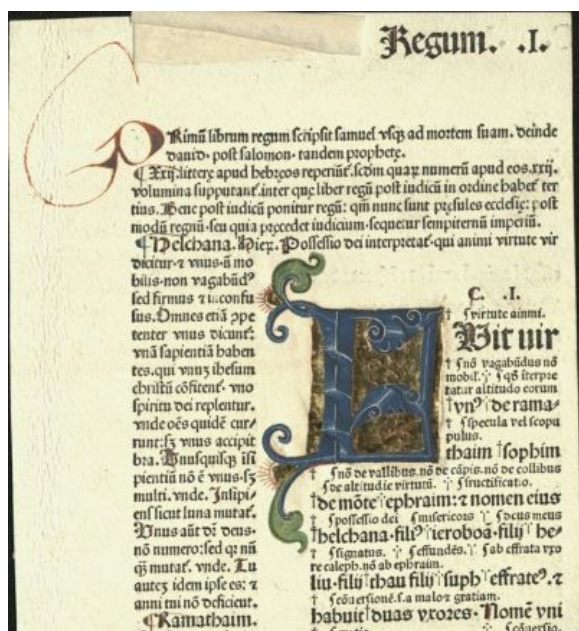 Regum. .I.
PRimū librum regum ſcripſit ſamuel vſqꝫ ad mortem ſuam. deinde
dauid. poſt ſalomon. tandem prophetę.
¶ Xxij. litterę apud hebręos reperiūt. ſcdm quaꝝ numerū apud eos .xxij.
volumina ſupputant. inter que liber regū poſt iudicū in ordine habet ter
tius. Bene poſt iudicū ponitur regū: qm̄ nunc ſunt pręſules eccleſię: poſt
modū regnū. ſeu qui a pręcedet iudicium. ſequetur ſempiternū imperiū.
¶ Helchana. Hier. Poſſeſſio dei interpretat. qui animi virtute vir
dicitur. ⁊ vnus. ū mo
bilis. non vagabūdꝰ
ſed firmus ⁊ incōfu
ſus. Omnes etiā ꝓpe
tenter vnus dicunt:
vnā ſapientiā haben
tes. qui vnuꝫ iheſum
chriſtū cōfitent. vno
ſpiritu dei replentur.
vnde oēs quidē cur/
runt: ſꝫ vnus accipit
bra. Vnuſquiſqꝫ iſi
pientiū nō ē vnus. ſꝫ
multi. vnde. Inſipi/
ens ſicut luna mutat.
Vnus aūt dr̄ deus.
nō numero: ſed qꝛ nū
q̄ꝫ mutat. vnde. Tu
auteꝫ idem ipſe es: ⁊
anni tui nō deficient.
¶ Ramathaim.
C. .I.
† ſ virtute animi.
FVit uir
† ſ nō vagabūdus nō
mobil. ſ qꝺ īterpre
tatur altitudo eorum
†vnꝰ de rama/
ſ ſpecula vel ſcopu
pulus.
thaim †ſophim
† ſ nō de vallibus. nō de cāpis. nō de collibus
ſ de altitudīe virtutū. ſ fructificatio.
†de mōte ephraim: ⁊ nomen eius
† ſ poſſeſſio dei ſ miſericors ſ deus meus
†helchana. filiꝰ ieroboā. filij he/
† ſ ſignatus. ſ effundēs. ſ ab effrata vxo
re caleph. nō ab ephraim.
liu. filij †thau filij ſuph effrateꝰ. ⁊
† ſ cōuerſionē. ſ. a malo ⁊ gratiam.
habuit †duas vxores. Nomē vni